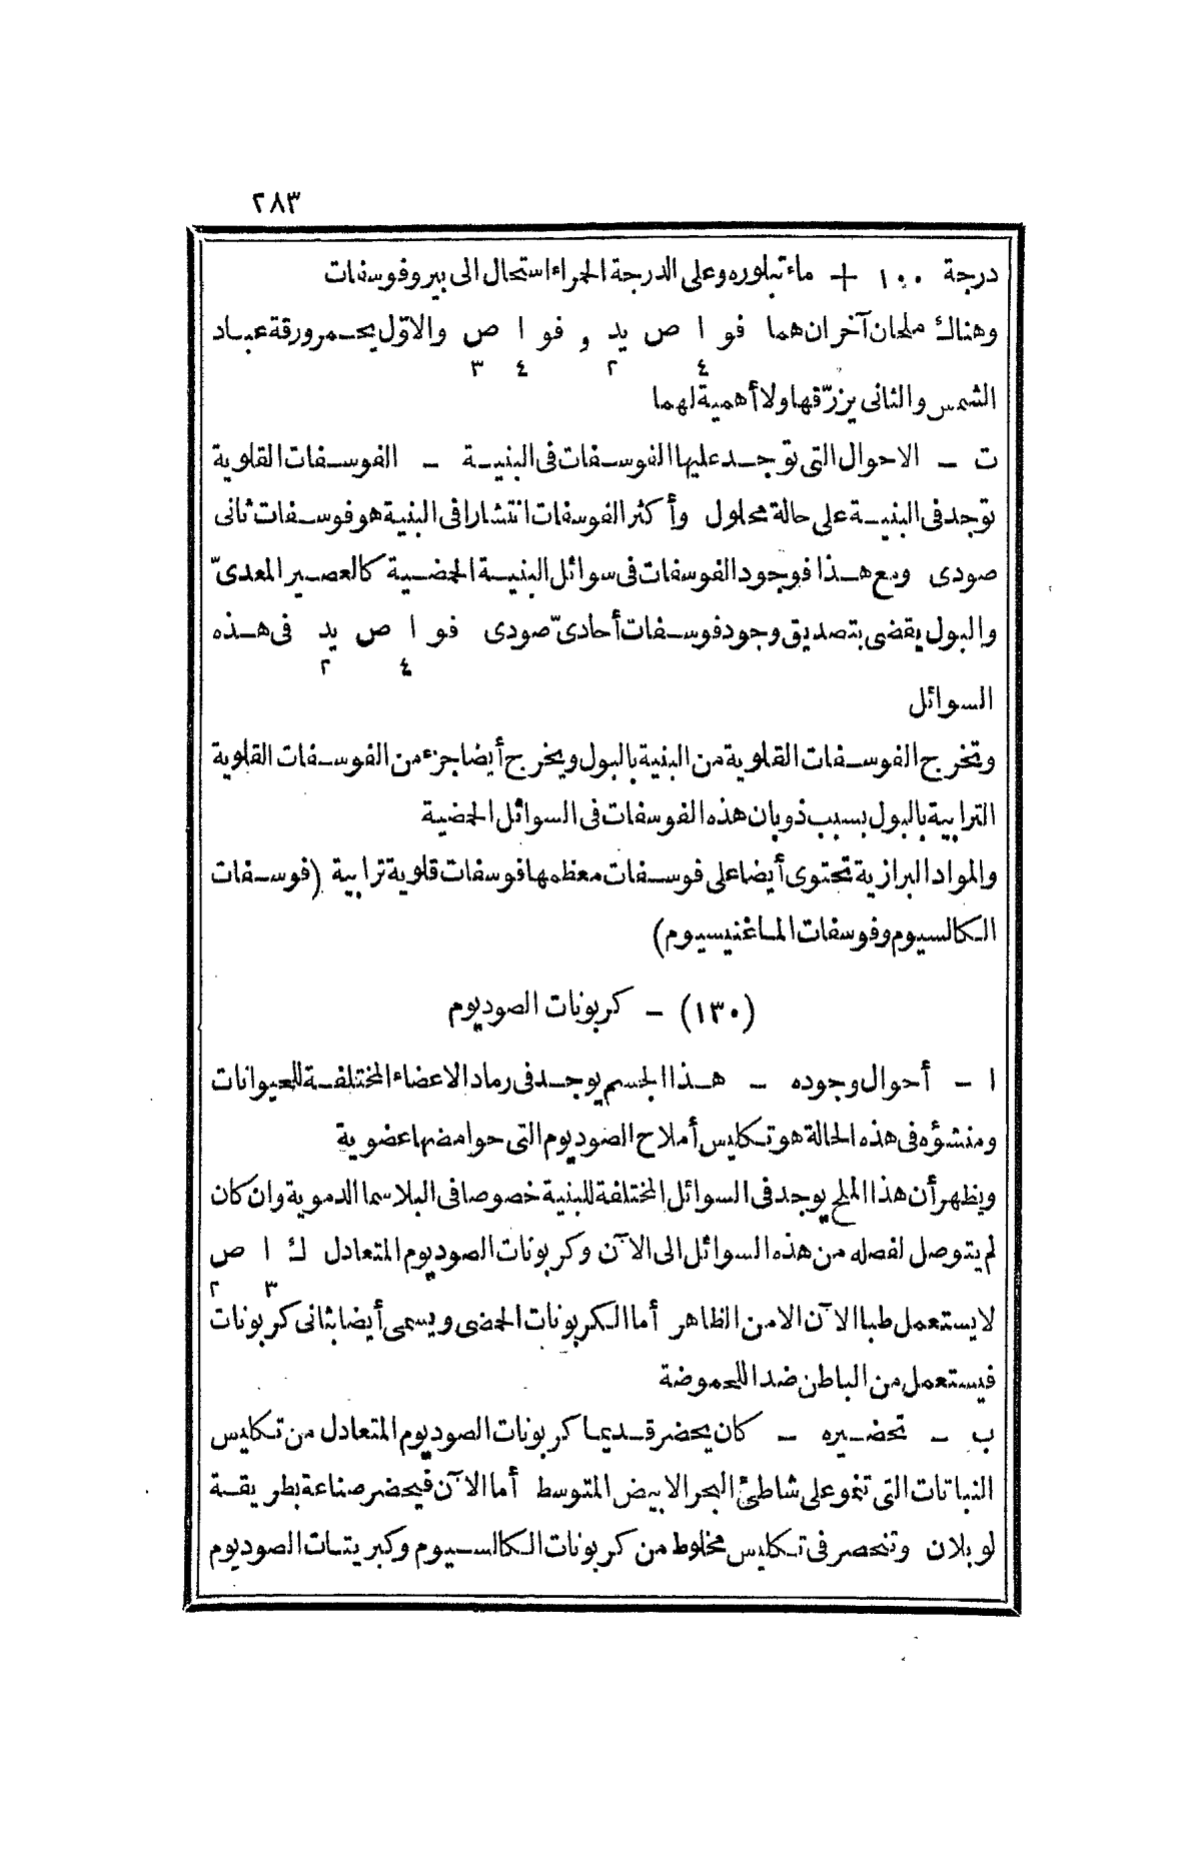 ٢٨٣
درجة ١٠٠ + ماء تبلوره وعلى الدرجة الحمراء استحال الى بيروفوسفات
وهناك ملحان آخران هما فو ا ص يد و فو ا ص والاوّل يحمر ورقة عباد
٤ ٢ ٤ ٣
الشمس والثانى يزرّقها ولا أهمية لهما
ت – الاحوال التى توجد عليها الفوسفات فى البنية – الفوسفات القلوية
توجد فى البنية على حالة محلول وأكثر الفوسفات انتشارا فى البنية هو فوسفات ثانى
صودى ومع هذا فوجود الفوسفات فى سوائل البنية الحمضية كالعصير المعدىّ
والبول يقضى بتصديق وجود فوسفات أحادىّ صودى فو ا ص يد فى هذه
٤ ٢
السوائل
وتخرج الفوسفات القلوية من البنية بالبول ويخرج أيضا جزء من الفوسفات القلوية
الترابية بالبول بسبب ذوبان هذه الفوسفات فى السوائل الحمضية
والمواد البرازية تحتوى أيضا على فوسفات معظمها فوسفات قلوية ترابية (فوسفات
الكالسيوم وفوسفات الماغنيسيوم)
(١٣٠) – كربونات الصوديوم
ا – أحوال وجوده – هذا الجسم يوجد فى رماد الاعضاء المختلفة للحيوانات
ومنشؤه فى هذه الحالة هو تكليس أملاح الصوديوم التى حوامضها عضوية
ويظهر أن هذا الملح يوجد فى السوائل المختلفة للبنية خصوصا فى البلاسما الدموية وان كان
لم يتوصل لفصله من هذه السوائل الى الآن وكربونات الصوديوم المتعادل ك ا ص
٣ ٢
لا يستعمل طبا الآن الا من الظاهر أما الكربونات الحمضى ويسمى أيضا بثانى كربونات
فيستعمل من الباطن ضدا للحموضة
ب – تحضيره – كان يحضر قديما كربونات الصوديوم المتعادل من تكليس
النباتات التى تنمو على شاطئ البحر الابيض المتوسط أما الآن فيحضر صناعة بطريقة
لوبلان وتنحصر فى تكليس مخلوط من كربونات الكالسيوم وكبريتات الصوديوم